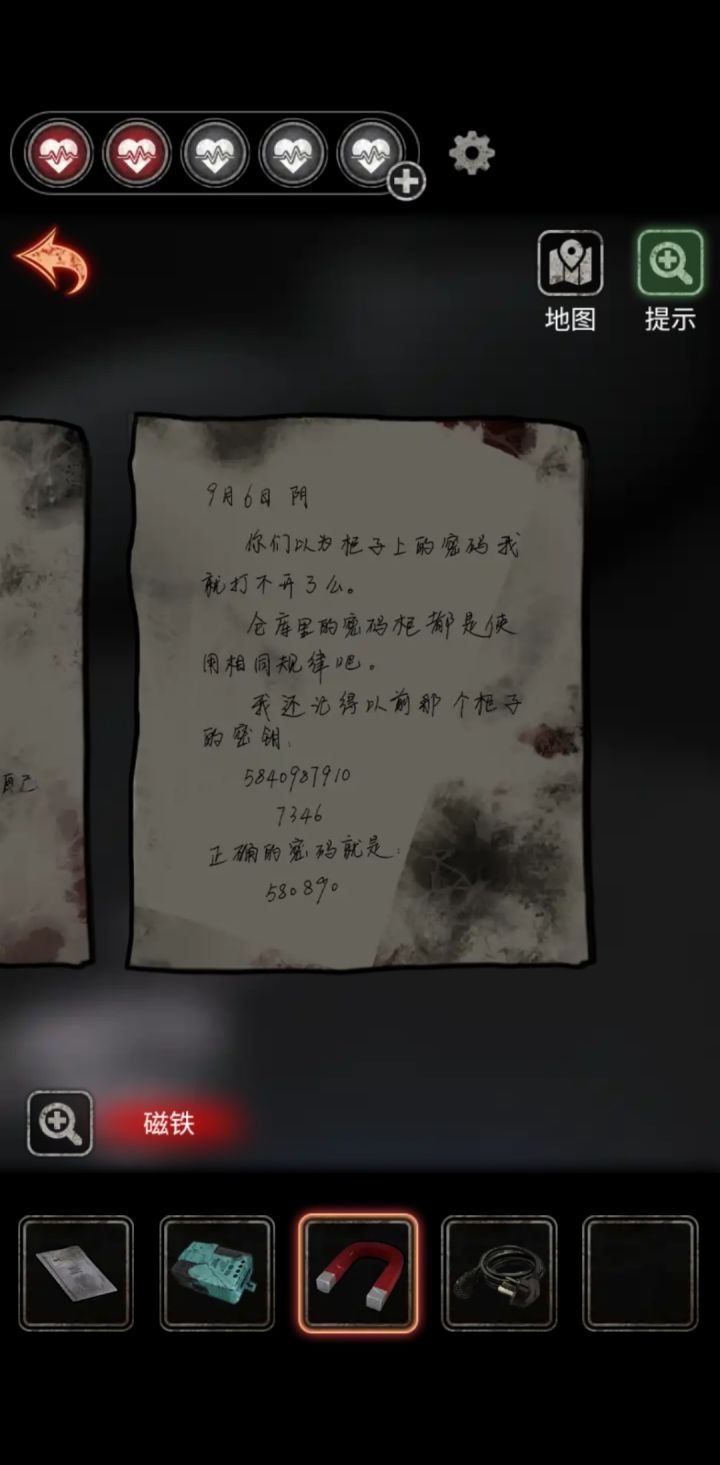 地图
提示
9月6日 阴
你们以为柜子上的密码我
就打不开了么。
仓库里的密码柜都是使
用相同规律吧。
我还记得以前那个柜子
的密钥:
5840987910
7346
正确的密码就是:
580890
自己
磁铁